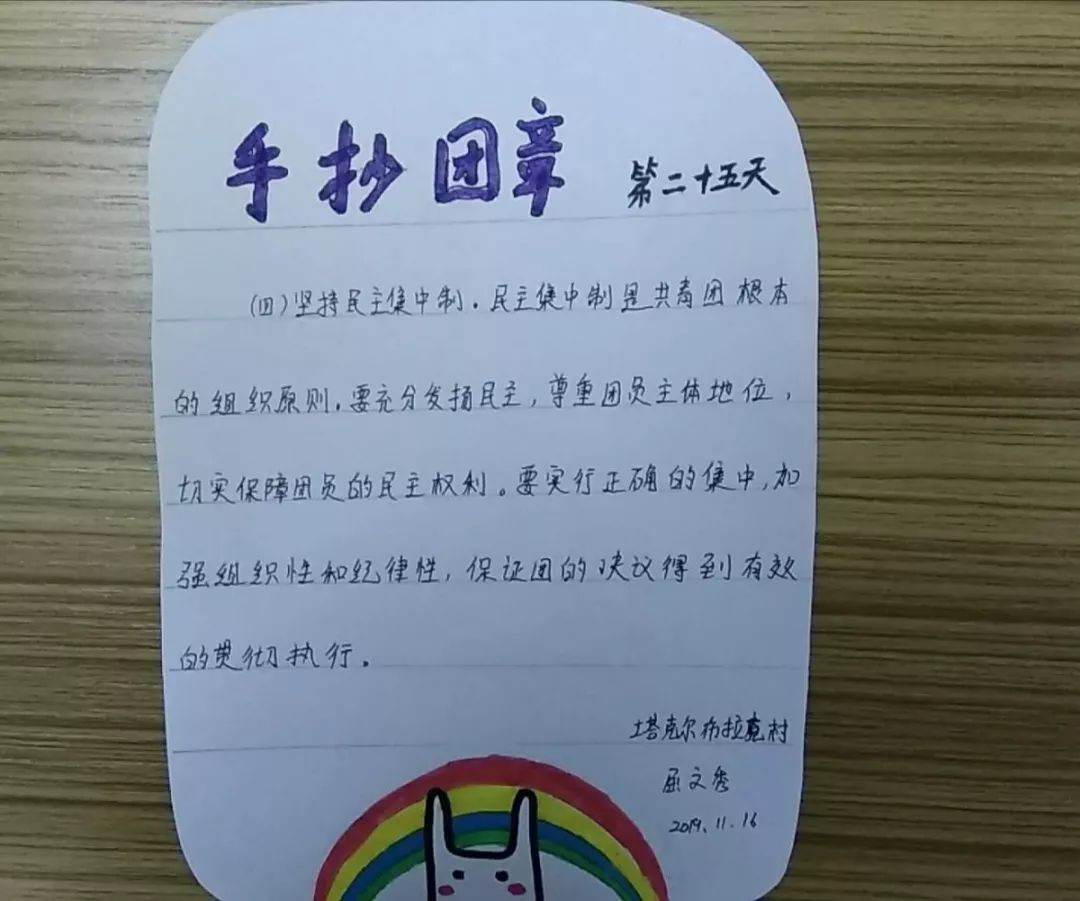 手抄团章 第二十五天
(四)坚持民主集中制.民主集中制是共青团根本
的组织原则.要充分发扬民主,尊重团员主体地位,
切实保障团员的民主权利。要实行正确的集中,加
强组织性和纪律性,保证团的决议得到有效
的贯彻执行.
塔克尔布拉克村
屈文秀
2019.11.16